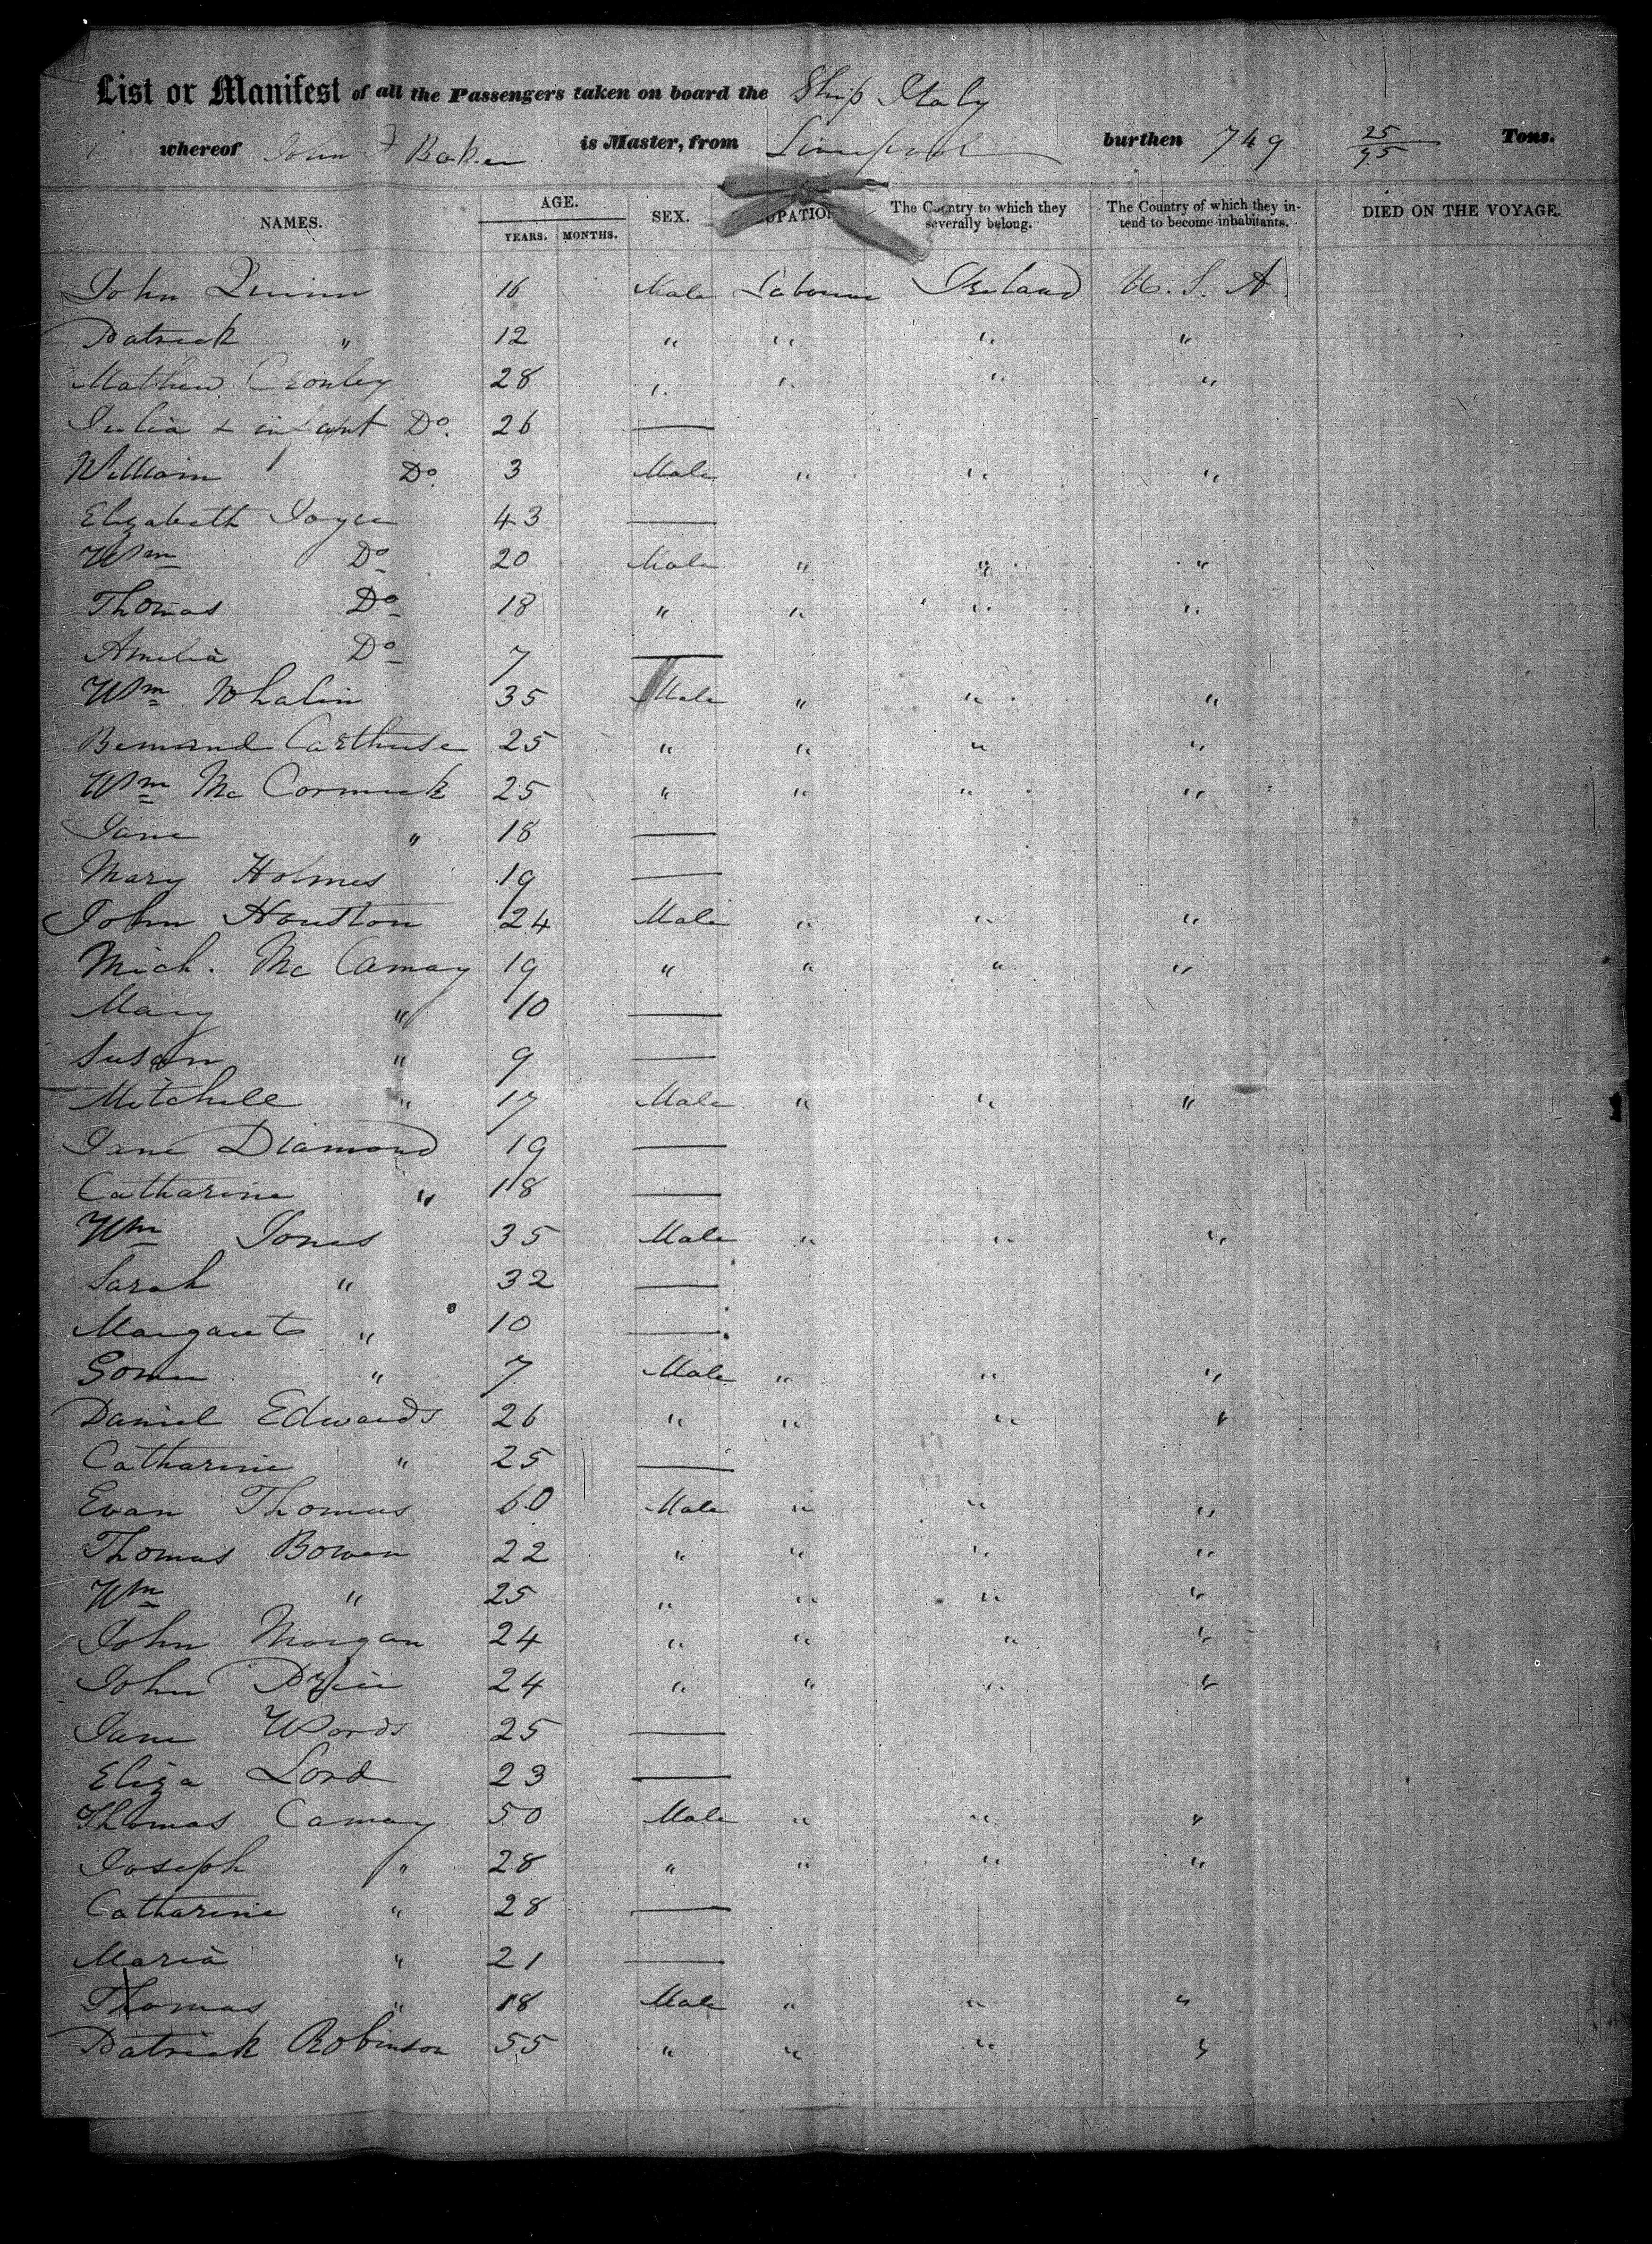 List or Manifest of all the Passengers taken on board the Ship Italy
whereof John F Baker is Master, from Liverpool burthen 749 25/95 Tons.
NAMES. AGE. YEARS. MONTHS. SEX. OCCUPATION The Country to which they severally belong. The Country of which they intend to become inhabitants. DIED ON THE VOYAGE.
John Quinn 16 Male Labourer Ireland U. S. A.
Patrick " 12 " " " "
Mathew Cronley 28 " " " "
Julia & infant Do. 26 —
William Do. 3 Male " " "
Elizabeth Joyce 43 —
Wm Do 20 Male " " "
Thomas Do 18 " " " "
Amelia Do 7 —
Wm Whalin 35 Male " " "
Bernard 25 " " " "
Wm Mc Cormick 25 " " " "
Jane " 18 —
Mary Holmes 19 —
John Houston 24 Male " " "
Mich. Mc Camay 19 " " " "
Mary " 10 —
Susan " 9 —
Mitchell " 17 Male " " "
Jane Diamond 19 —
Catharine " 18 —
Wm Jones 35 Male " " "
Sarah " 32 —
Margaret " 10 —
Gomer " 7 Male " " "
Daniel Edwards 26 " " " "
Catharine " 25 —
Evan Thomas 60 Male " " "
Thomas Bowen 22 " " " "
Wm " 25 " " " "
John Morgan 24 " " " "
John Price 24 " " " "
Jane Words 25 —
Eliza Lord 23 —
Thomas Camay 50 Male " " "
Joseph " 28 " " " "
Catharine " 28 —
Maria " 21 —
Thomas " 18 Male " " "
Patrick Robinson 55 " " " "